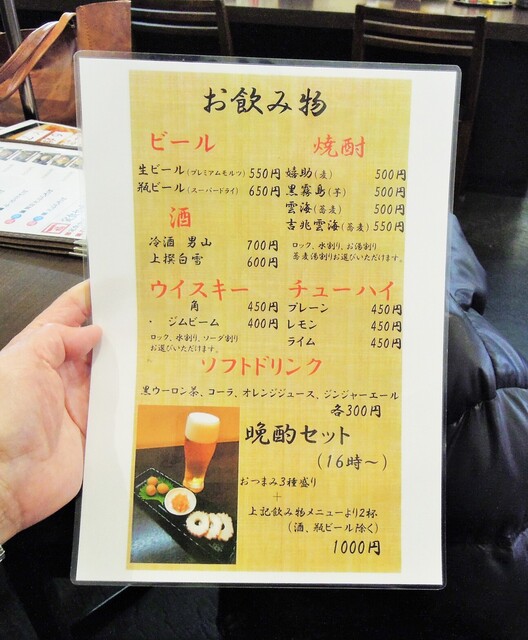 お飲み物
ビール
生ビール(プレミアムモルツ) 550円
瓶ビール(スーパードライ) 650円
酒
冷酒 男山 700円
上撰白雪 600円
ウイスキー
角 450円
・ ジムビーム 400円
ロック、水割り、ソーダ割り
お選びいただけます。
焼酎
嬉助(麦) 500円
黒霧島(芋) 500円
雲海(蕎麦) 500円
吉兆雲海(蕎麦) 550円
ロック、水割り、お湯割り
蕎麦湯割りお選びいただけます。
チューハイ
プレーン 450円
レモン 450円
ライム 450円
ソフトドリンク
黒ウーロン茶、コーラ、オレンジジュース、ジンジャーエール
各300円
晩酌セット
(16時～)
おつまみ3種盛り
+
上記飲み物メニューより2杯
(酒、瓶ビール除く)
1000円